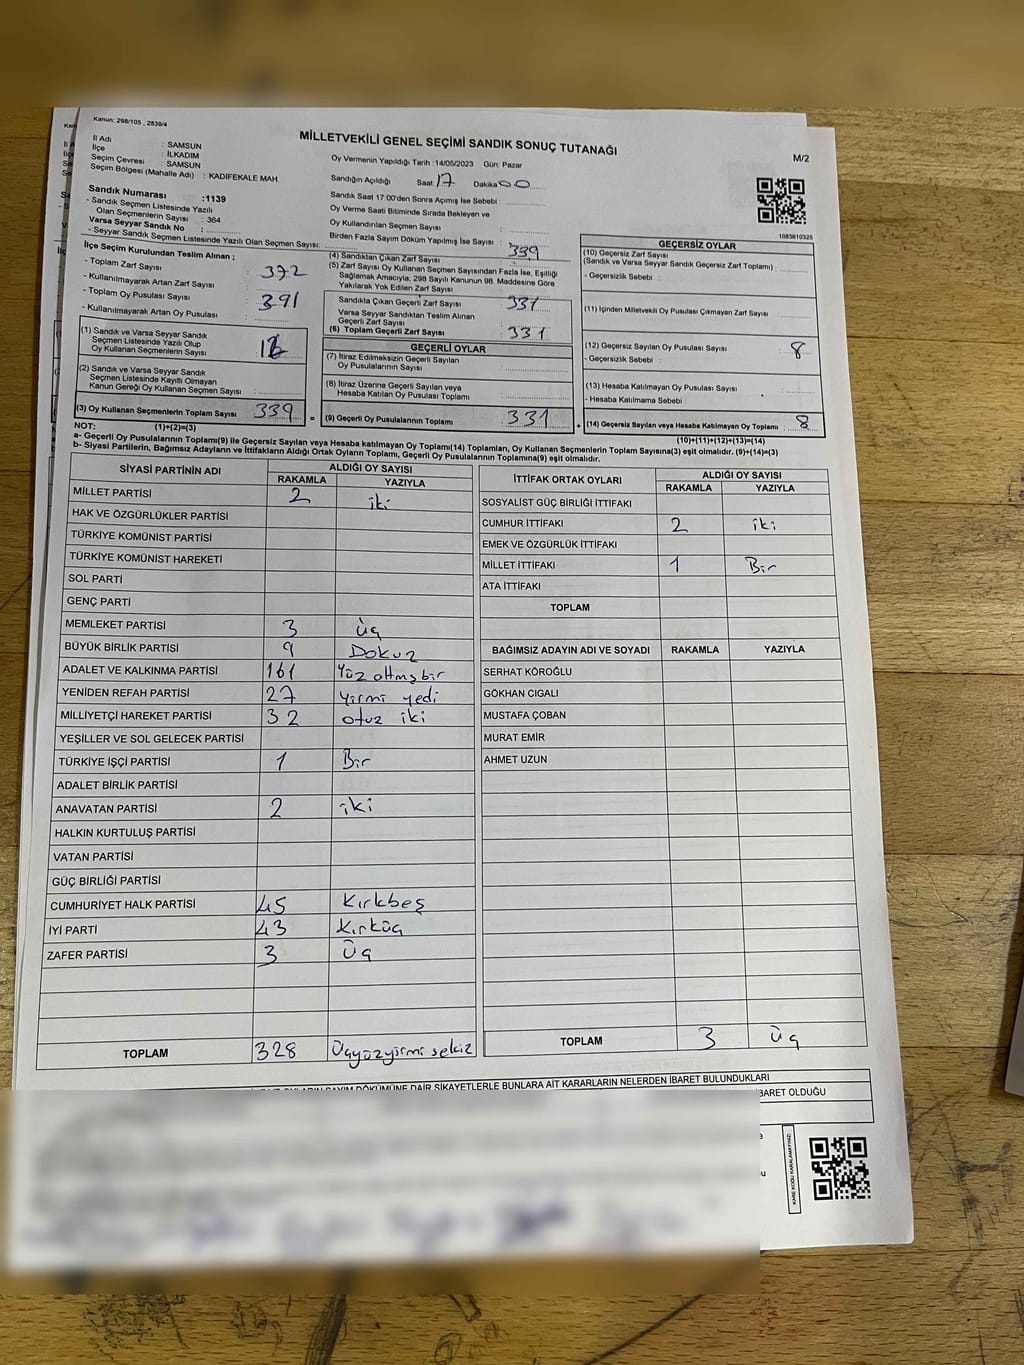 Kanun: 298/105 , 2839/4
MİLLETVEKİLİ GENEL SEÇİMİ SANDIK SONUÇ TUTANAĞI
M/2
İl Adı : SAMSUN
İlçe : İLKADIM
Seçim Çevresi : SAMSUN
Seçim Bölgesi (Mahalle Adı) : KADIFEKALE MAH.
Sandık Numarası :1139
- Sandık Seçmen Listesinde Yazılı
Olan Seçmenlerin Sayısı : 364
Varsa Seyyar Sandık No :
- Seyyar Sandık Seçmen Listesinde Yazılı Olan Seçmen Sayısı:
Oy Vermenin Yapıldığı Tarih :14/05/2023 Gün: Pazar
Sandığın Açıldığı Saat: 17 Dakika 00
Sandık Saat 17.00'den Sonra Açımış İse Sebebi :
Oy Verme Saati Bitiminde Sırada Bekleyen ve
Oy Kullandırılan Seçmen Sayısı :
Birden Fazla Sayım Döküm Yapılmış İse Sayısı :
1083610325
İlçe Seçim Kurulundan Teslim Alınan ;
- Toplam Zarf Sayısı : 372
- Kullanılmayarak Artan Zarf Sayısı :
- Toplam Oy Pusulası Sayısı : 391
- Kullanılmayarak Artan Oy Pusulası :
(1) Sandık ve Varsa Seyyar Sandık
Seçmen Listesinde Yazılı Olup
Oy Kullanan Seçmenlerin Sayısı :
(2) Sandık ve Varsa Seyyar Sandık
Seçmen Listesinde Kayıtlı Olmayan
Kanun Gereği Oy Kullanan Seçmen Sayısı :
(3) Oy Kullanan Seçmenlerin Toplam Sayısı : 339
(4) Sandıktan Çıkan Zarf Sayısı : 339
(5) Zarf Sayısı Oy Kullanan Seçmen Sayısından Fazla İse, Eşitliği
Sağlamak Amacıyla, 298 Sayılı Kanunun 98. Maddesine Göre
Yakılarak Yok Edilen Zarf Sayısı :
Sandıkta Çıkan Geçerli Zarf Sayısı : 331
Varsa Seyyar Sandıktan Teslim Alınan
Geçerli Zarf Sayısı :
(6) Toplam Geçerli Zarf Sayısı : 331
GEÇERLİ OYLAR
(7) İtiraz Edilmeksizin Geçerli Sayılan
Oy Pusulalarının Sayısı :
(8) İtiraz Üzerine Geçerli Sayılan veya
Hesaba Katılan Oy Pusulası Toplamı :
= (9) Geçerli Oy Pusulalarının Toplamı : 331
GEÇERSİZ OYLAR
(10) Geçersiz Zarf Sayısı
(Sandık ve Varsa Seyyar Sandık Geçersiz Zarf Toplamı) :
- Geçersizlik Sebebi :
(11) İçinden Milletvekili Oy Pusulası Çıkmayan Zarf Sayısı :
(12) Geçersiz Sayılan Oy Pusulası Sayısı : 8
- Geçersizlik Sebebi :
(13) Hesaba Katılmayan Oy Pusulası Sayısı :
- Hesaba Katılmama Sebebi :
+ (14) Geçersiz Sayılan veya Hesaba Katılmayan Oy Toplamı : 8
NOT: (1)+(2)=(3) (10)+(11)+(12)+(13)=(14)
a- Geçerli Oy Pusulalarının Toplamı(9) ile Geçersiz Sayılan veya Hesaba katılmayan Oy Toplamı(14) Toplamları, Oy Kullanan Seçmenlerin Toplam Sayısına(3) eşit olmalıdır. (9)+(14)=(3)
b- Siyasi Partilerin, Bağımsız Adayların ve İttifakların Aldığı Ortak Oyların Toplamı, Geçerli Oy Pusulalarının Toplamına(9) eşit olmalıdır.
SİYASİ PARTİNİN ADI ALDIĞI OY SAYISI
RAKAMLA YAZIYLA
MİLLET PARTİSİ 2 iki
HAK VE ÖZGÜRLÜKLER PARTİSİ
TÜRKİYE KOMÜNİST PARTİSİ
TÜRKİYE KOMÜNİST HAREKETİ
SOL PARTİ
GENÇ PARTİ
MEMLEKET PARTİSİ 3 üç
BÜYÜK BİRLİK PARTİSİ 9 Dokuz
ADALET VE KALKINMA PARTİSİ 161 Yüz altmış bir
YENİDEN REFAH PARTİSİ 27 yirmi yedi
MİLLİYETÇİ HAREKET PARTİSİ 32 otuz iki
YEŞİLLER VE SOL GELECEK PARTİSİ
TÜRKİYE İŞÇİ PARTİSİ 1 Bir
ADALET BİRLİK PARTİSİ
ANAVATAN PARTİSİ 2 iki
HALKIN KURTULUŞ PARTİSİ
VATAN PARTİSİ
GÜÇ BİRLİĞİ PARTİSİ
CUMHURİYET HALK PARTİSİ 45 Kırkbeş
İYİ PARTİ 43 Kırküç
ZAFER PARTİSİ 3 üç
TOPLAM 328 üçyüzyirmi sekiz
İTTİFAK ORTAK OYLARI ALDIĞI OY SAYISI
RAKAMLA YAZIYLA
SOSYALİST GÜÇ BİRLİĞİ İTTİFAKI
CUMHUR İTTİFAKI 2 iki
EMEK VE ÖZGÜRLÜK İTTİFAKI
MİLLET İTTİFAKI 1 Bir
ATA İTTİFAKI
TOPLAM
BAĞIMSIZ ADAYIN ADI VE SOYADI RAKAMLA YAZIYLA
SERHAT KÖROĞLU
GÖKHAN CIGALI
MUSTAFA ÇOBAN
MURAT EMİR
AHMET UZUN
TOPLAM 3 üç
SAYIM DÖKÜMÜNE DAİR ŞİKAYETLERLE BUNLARA AİT KARARLARIN NELERDEN İBARET BULUNDUKLARI
İBARET OLDUĞU
KARE KODU KARALAMAYINIZ!